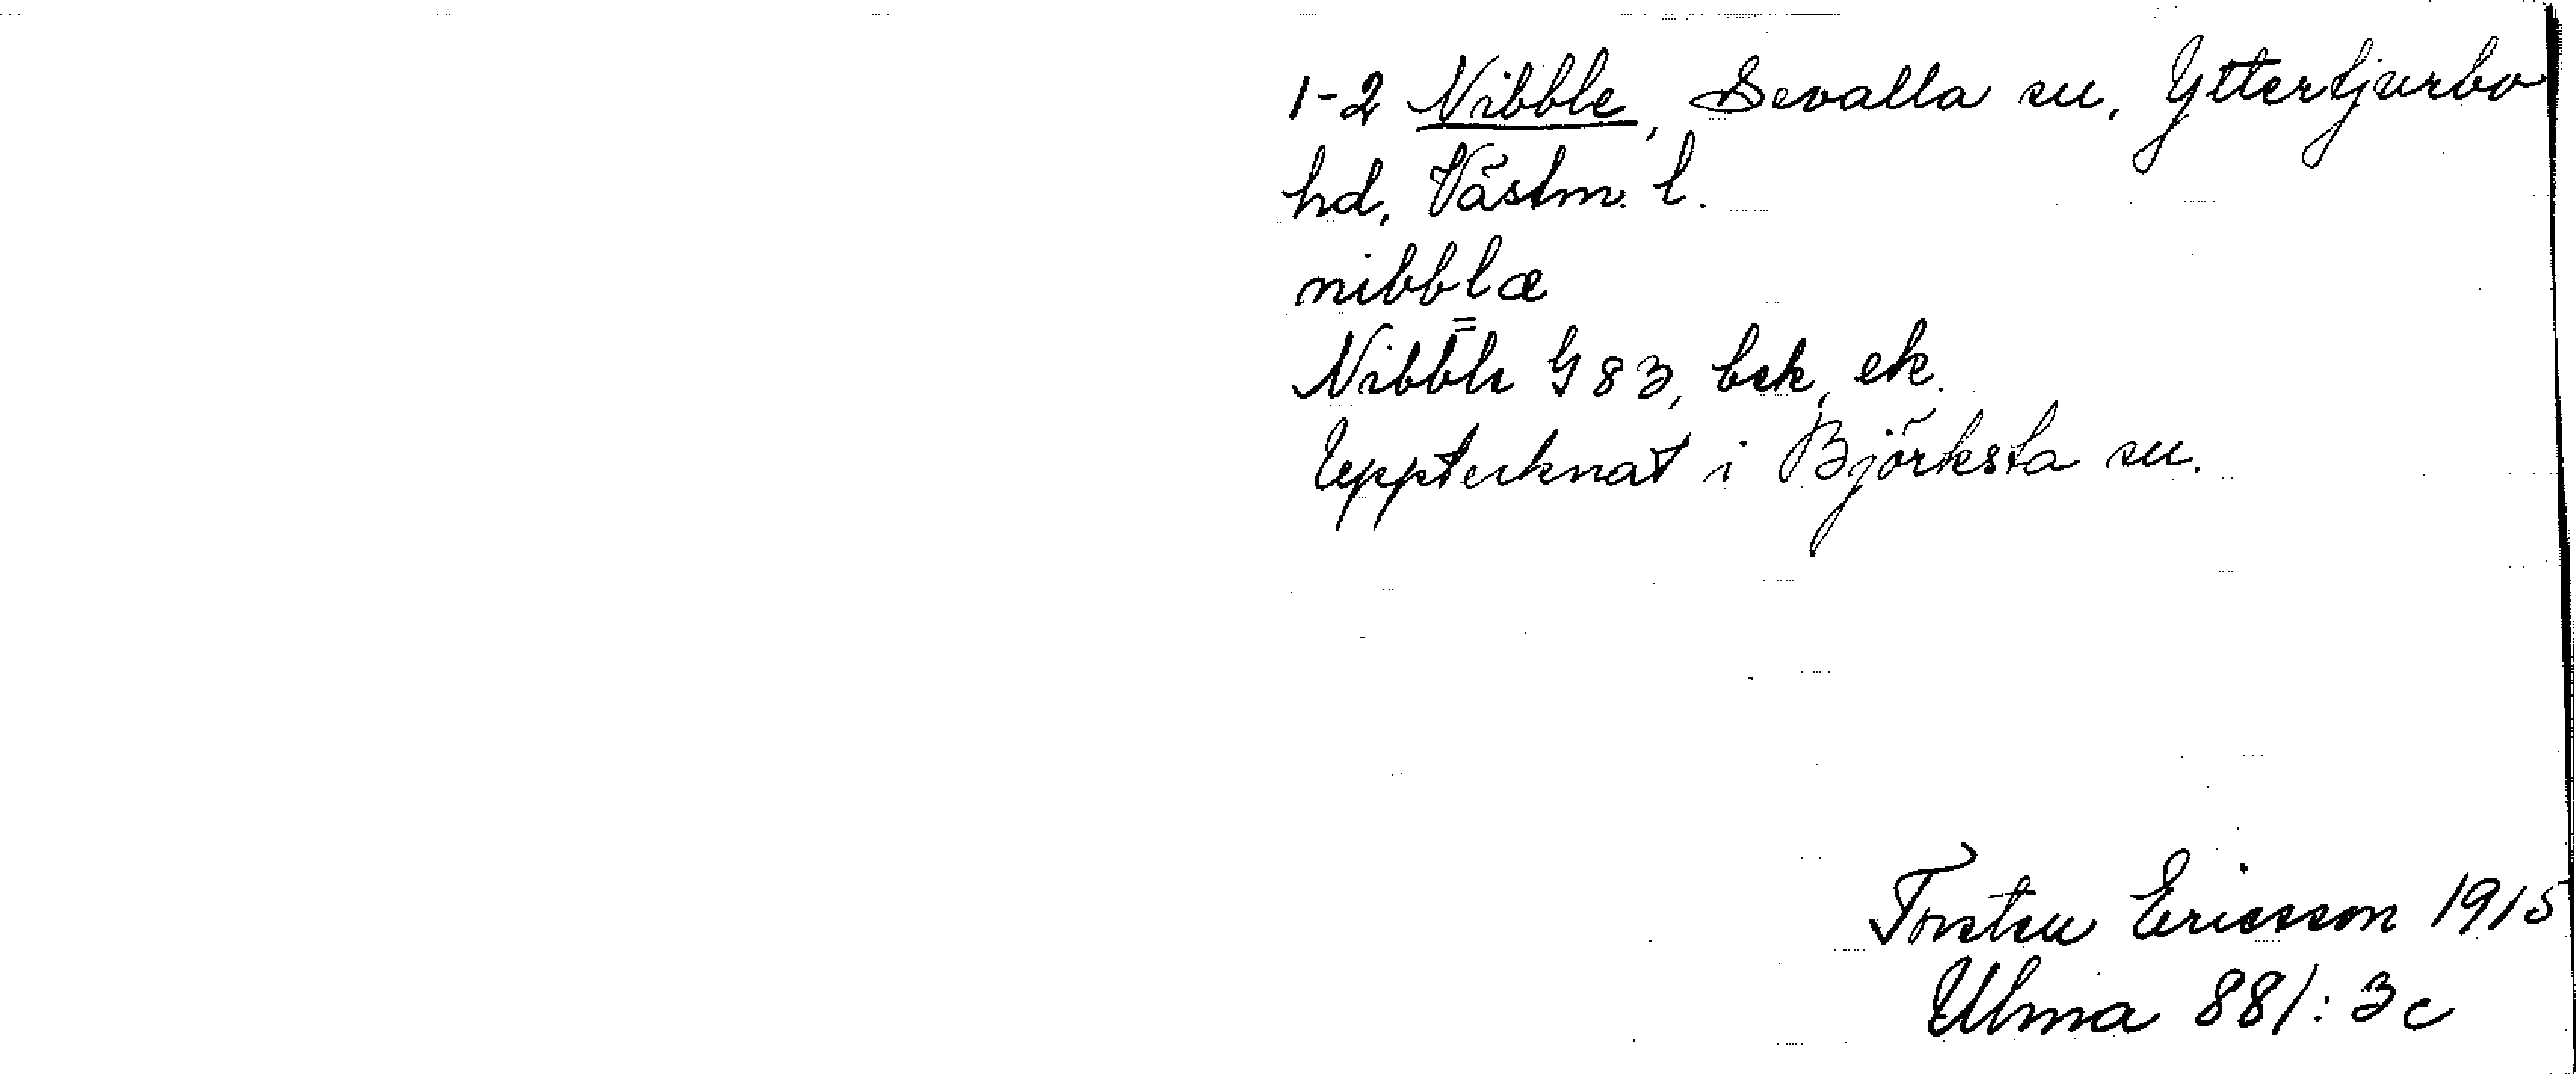 1-2 Nibble, Sevalla sn, Yttertjurbo
hd, Västm. l.
nibblæ
Nibble G 83, bek, ek.
Upptecknat i Björksta sn.
Torsten Ericsson 1915
Ulma 881:3c